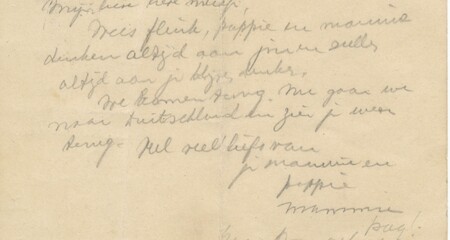 Mijn lieve lieve meisje,
Wees flink, pappie en mammie
denken altijd aan jou en zullen
altijd aan je blijven denken.
We komen terug. Nu gaan we
naar Duitschland en zien je weer
terug. Heel veel liefs van
je mammie en
pappie
mammie
dag!